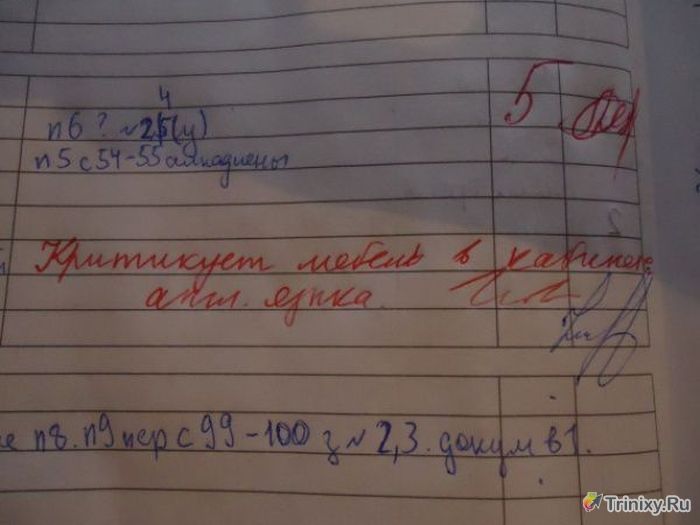 4
п6? №25(у) 5
п5 с54-55 алкадиены
Критикует мебель в кабинете
англ. языка.
п8. п9 пер с 99-100 з№2,3. докум в1.
Trinixy.Ru